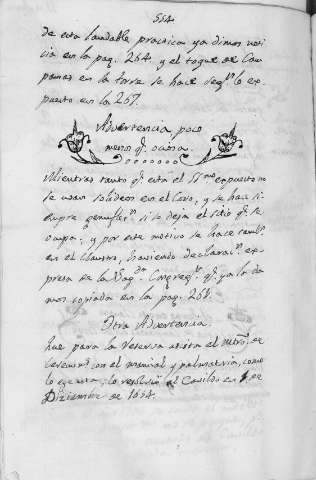 554
de esta laudable practica ya dimos noti
cia en la pag. 264. y el toque de Cam
panas en la torre se hace seg.n lo ex
puesto en la 267.
Advertencia poco
menos q.e ociosa.
Mientras tanto q.e está el SS.mo expuesto no
se usan solideos en el Coro, y se hace si
empre genuflex.n si se deja el sitio q.e se
ocupa, y por este motivo se hace tamb.n
en el Claustro, haviendo declarac.n ex
presa de la Sag.da Congreg.n q.e ya la de
mos copiada en la pag. 268.
Otra Advertencia.
Que para la Reserva asista el Mtro. de
Cerem.s con el manual y palmatoria, como
lo egecuta, lo resolvió el Cavildo en de
Diziembre de 1654.